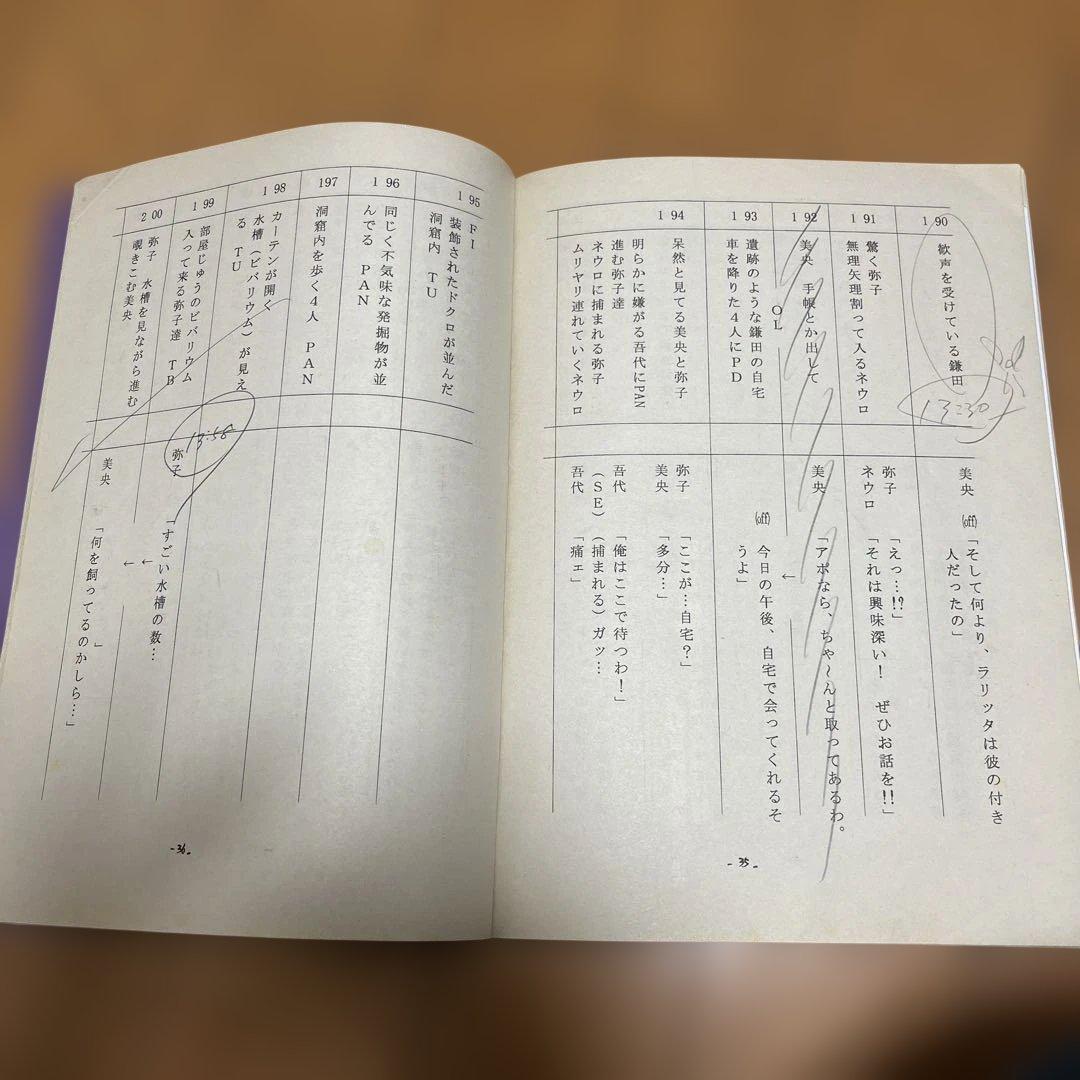 190
歓声を受けている鎌田
13:30
美央
(off)
「そして何より、ラリッタは彼の付き
人だったの」
191
驚く弥子
無理矢理割って入るネウロ
弥子
「えっ…!?」
ネウロ
「それは興味深い! ぜひお話を!!」
192
美央 手帳とか出して
OL
美央
「アポなら、ちゃ~んと取ってあるわ。
↓
193
遺跡のような鎌田の自宅
車を降りた4人にPD
(off)
今日の午後、自宅で会ってくれるそ
うよ」
194
呆然と見てる美央と弥子
弥子
「ここが…自宅?」
美央
「多分…」
明らかに嫌がる吾代にPAN
進む弥子達
ネウロに捕まれる弥子
ムリヤリ連れていくネウロ
吾代
「俺はここで待つわ!」
(SE)
(捕まれる)ガッ…
吾代
「痛ェ」
-35-
195
FI
装飾されたドクロが並んだ
洞窟内 TU
196
同じく不気味な発掘物が並
んでる PAN
197
洞窟内を歩く4人 PAN
198
カーテンが開く
水槽(ビバリウム)が見え
る TU
199
部屋じゅうのビバリウム
入って来る弥子達 TB
13:58
弥子
「すごい水槽の数…
↓
200
弥子 水槽を見ながら進む
覗きこむ美央
↓
」
美央
「何を飼ってるのかしら…」
-36-